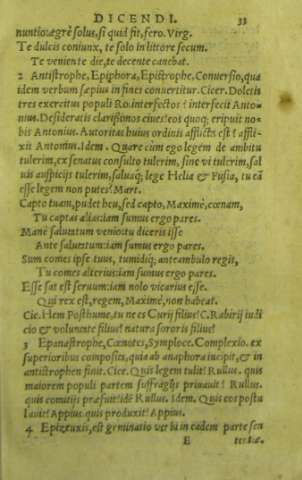 DICENDI. 33
nuntio: ægrè solus, si quid fit, fero. Virg.
Te dulcis coniunx, te solo in littore secum.
Te veniente die, te decente canebat.
2 Antistrophe, Epiphora, Epistrophe. Conuersio, qua
idem verbum sæpius in fines conuertitur. Cicer. Doletis
tres exercitus populi Ro. interfectos? interfecit Anto-
nius. Desideratis clarissimos ciues? eos quoq; eripuit no-
bis Antonius. Autoritas huius ordinis afflicta est? affli-
xit Antonius. Idem. Quare cùm ego legem de ambitu
tulerim, ex senatus consulto tulerim, sine vi tulerim, sal
uis auspicijs tulerim, salua q; lege Helia & Fusia, tu eã
esse legem non putes? Mart.
Capto tuam, pudet heu, sed capto, Maximè, cœnam,
Tu captas alias: iam sumus ergo pares.
Manè salutatum venio: tu diceris isse
Ante salutatum: iam sumus ergo pares.
Sum comes ipse tuus, tumidiq; anteambulo regis,
Tu comes alterius: iam sumus ergo pares.
Esse sat est seruum: iam nolo vicarius esse.
Qui rex est, regem, Maximè, non habeat.
Cic. Hem Posthume, tu ne es Curij filius? C. Rabirij iudi
cio & voluntate filius? natura sororis filius?
3 Epanastrophe, Cœnotes, Symploce. Complexio. ex
superioribus composita, quia ab anaphora incipit, & in
antistrophen finit. Cice. Quis legem tulit? Rullus. quis
maiorem populi partem suffragijs priuauit? Rullus.
quis comitijs præfuit? idē Rullus. Idem. Quis eos postu
lauit? Appius. quis produxit? Appius.
4 Epizeuxis, est geminatio verbi in eadem parte sen
E tentiæ.